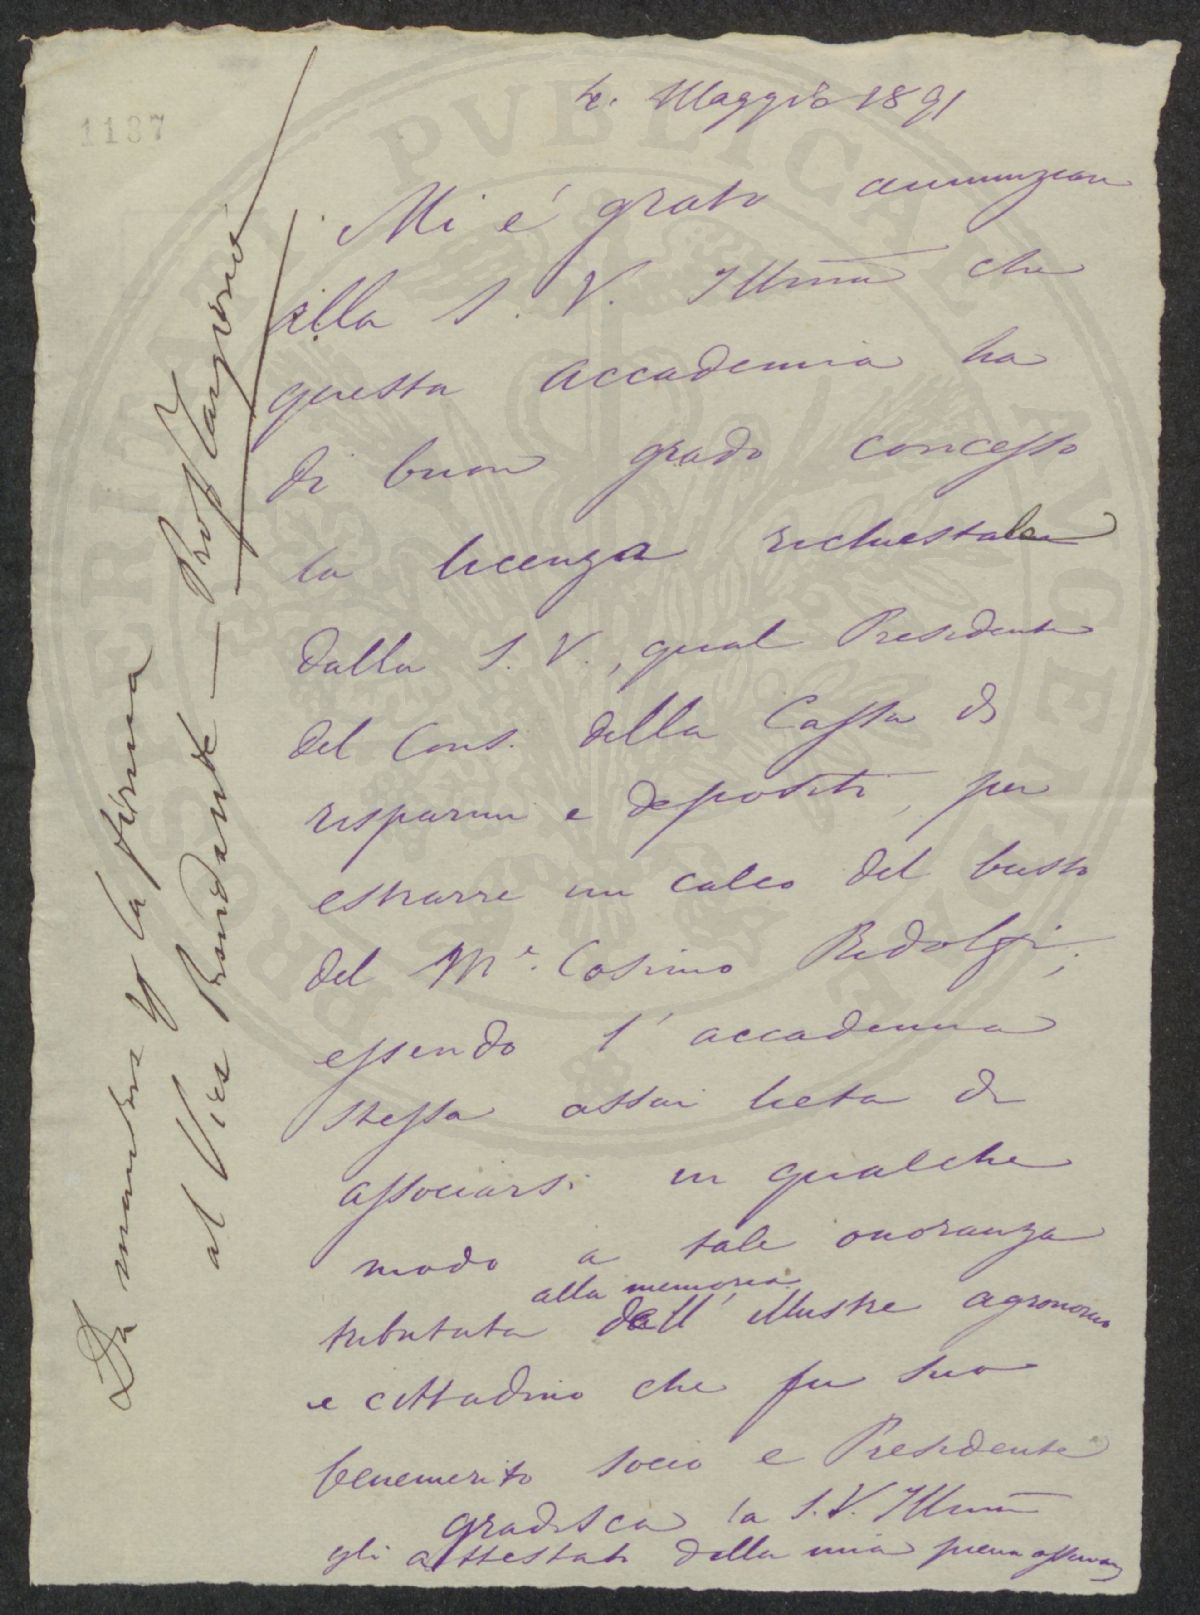 1187
4. Maggio 1891
Mi è grato annunziare
alla S. V. Illma che
questa Accademia ha
di buon grado concesso
la licenza richiestale
dalla S. V., qual Presidente
del Cons. della Cassa di
risparmi e depositi, per
estrarre un calco del busto
del Me. Cosimo Ridolfi;
essendo l'accademia
stessa assai lieta di
associarsi in qualche
modo a tale onoranza
alla memoria
tributata dell'illustre agronomo
e cittadino che fu suo
benemerito socio e Presidente
gradisca la S. V. Illma
gli attestati della mia piena osservanza
Da mandarsi per la firma
al Vice Presidente — Prof Targioni
PVBLICAE